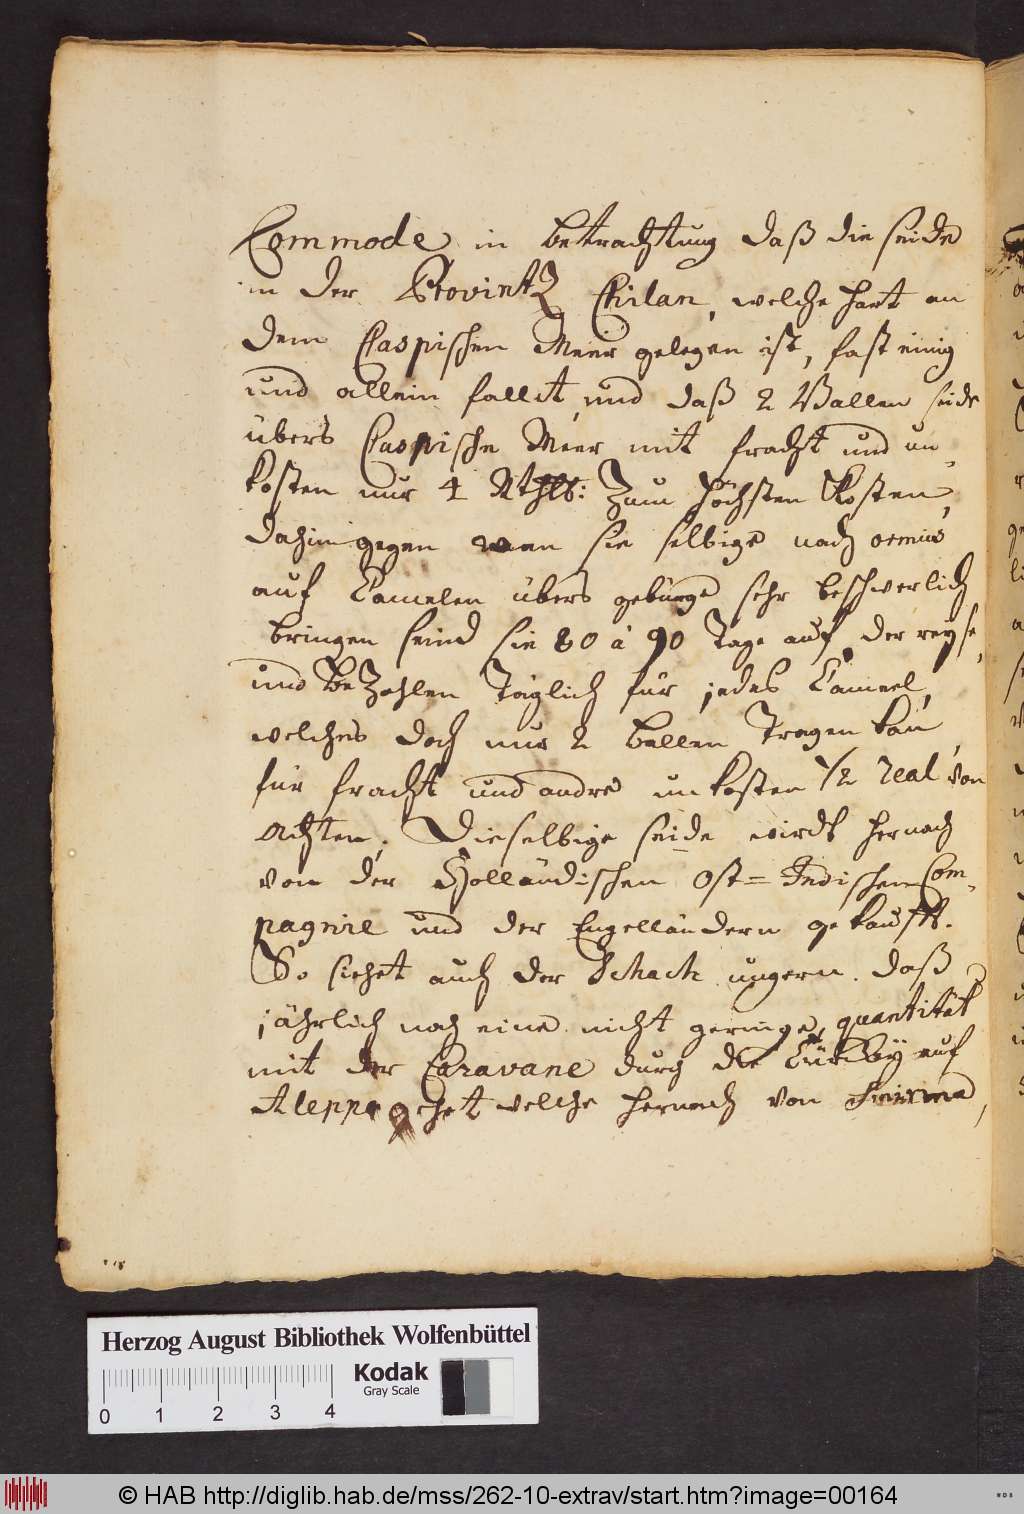 Commode in betrachtung daß die seide
in der Provintz Chilan, welche hart an
dem Caspischen Meer gelegen ist, fast einig
und allein fallet, und daß 2 Ballen seide
übers Caspische Meer mit fracht und un-
kosten nur 4 Rthlr: zum höchsten kosten,
dahingegen wan sie selbige nach ormus
auf Camelen übers gebürge sehr beschwerlich
bringen seind sie 80 à 90 Tage auf der reyse,
und bezahlen Täglich für jedes Cameel,
welches doch nur 2 ballen Tragen kan,
für fracht und andre unkosten 1/2 real von
Achten. Dieselbige seide wirdt hernach
von der Holländischen Ost=Indischen Com-
pagnie und der Engelländern gekaufft.
So siehet auch der Schach ungern. daß
jährlich noch eine nicht geringe, quantität
mit der Caravane durch die Türckey auf
Aleppo gehet welche hernach von
Herzog August Bibliothek Wolfenbüttel
Kodak
Gray Scale
0 1 2 3 4
© HAB http://diglib.hab.de/mss/262-10-extrav/start.htm?image=00164